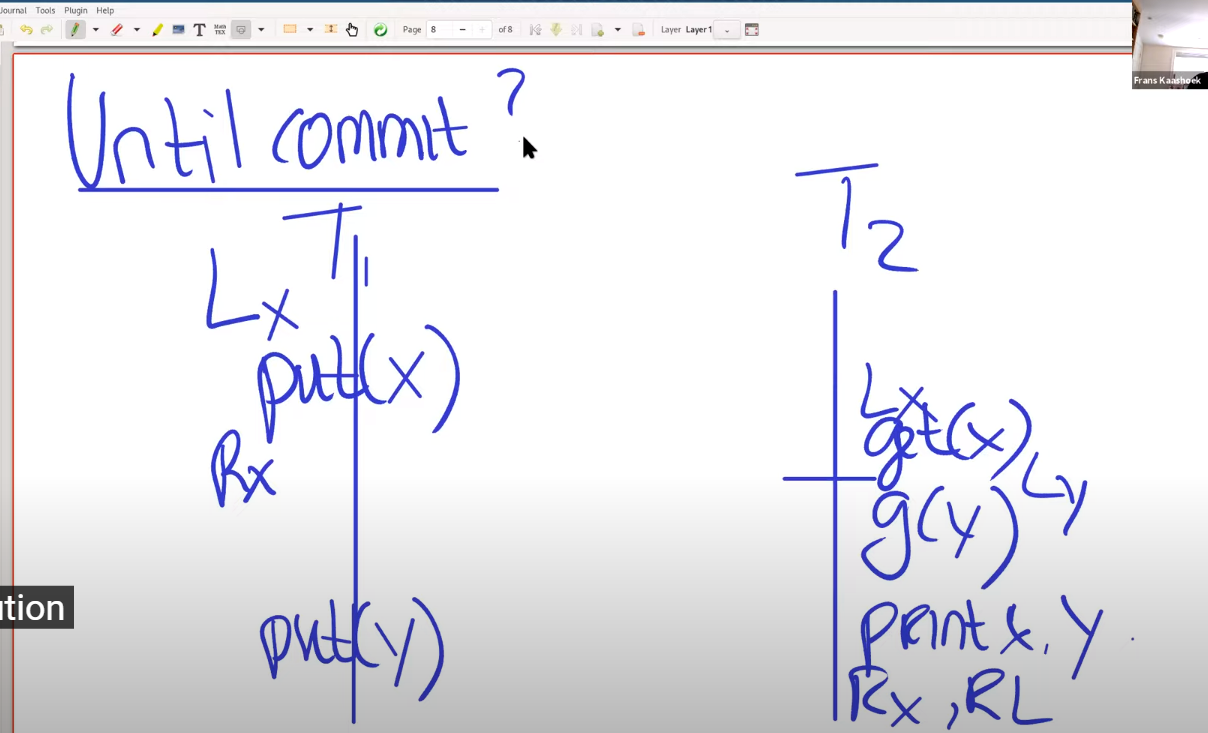 Journal Tools Plugin Help
T Math TEX Page 8 of 8 Layer Layer 1
Frans Kaashoek
Until commit ?
T1
Lx
put(x)
Rx
put(y)
T2
Lx
get(x)
Ly
g(y)
print x, y
Rx, RL
ution